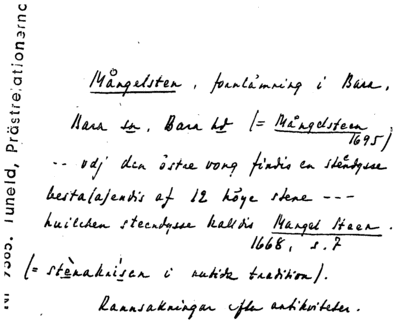 Mångelsten, fornlämning i Bara,
Bara sn, Bara hd (= Mångelsteen
1695)
-- udj den östre vong findis en stendysse
besta(a)endis af 12 höye stene ---
huilchen steendysse kaldis Mangel Steen.
1668, s. 7
(= stènakni̱sen i nutida tradition).
Rannsakningar efter antikviteter.
Tuneld, Prästrelationerna